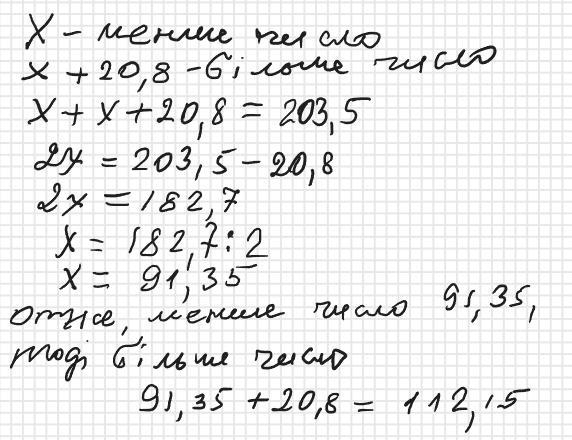 X – менше число
x + 20,8 – більше число
x + x + 20,8 = 203,5
2x = 203,5 – 20,8
2x = 182,7
x = 182,7 : 2
x = 91,35
отже, менше число 91,35,
тоді більше число
91,35 + 20,8 = 112,15